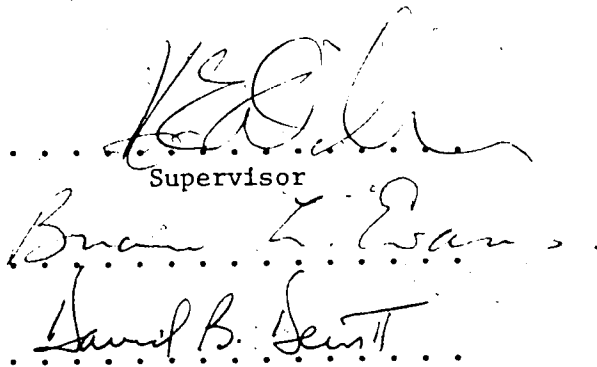 Supervisor
Brian L. Evans.
David B. Dewitt